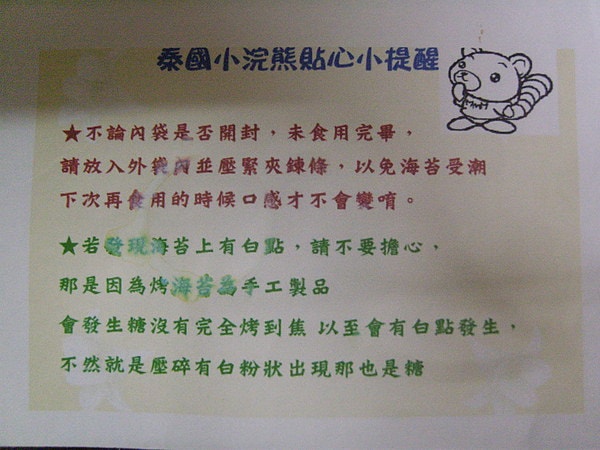 泰國小浣熊貼心小提醒
★不論內袋是否開封，未食用完畢，
請放入外袋內並壓緊夾鍊條，以免海苔受潮
下次再食用的時候口感才不會變唷。
★若發現海苔上有白點，請不要擔心，
那是因為烤海苔為手工製品
會發生糖沒有完全烤到焦 以至會有白點發生，
不然就是壓碎有白粉狀出現那也是糖